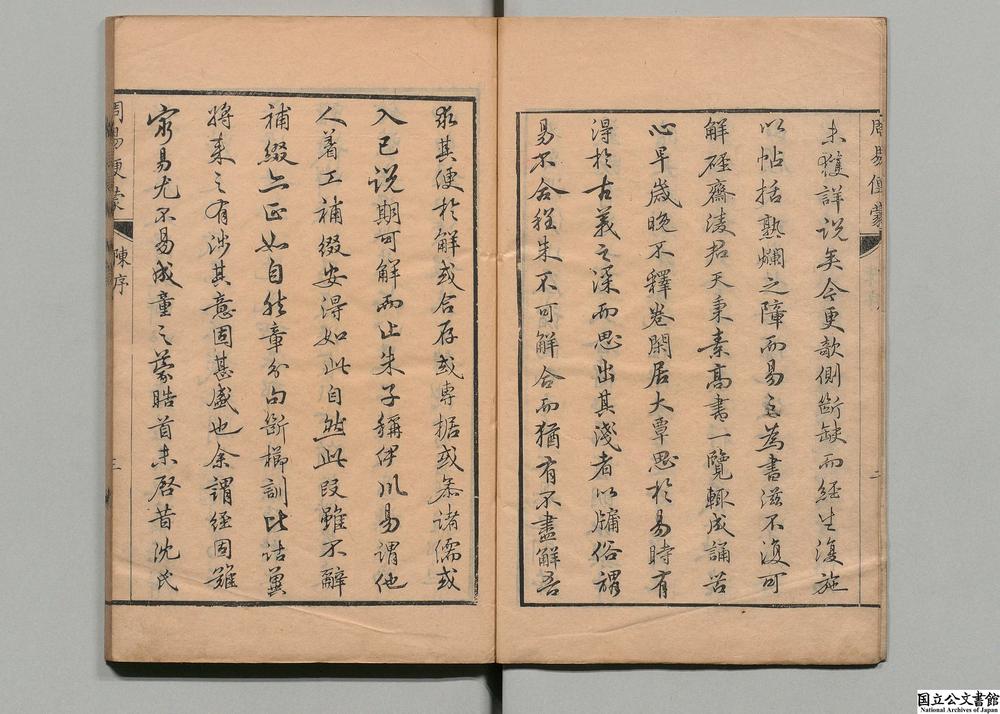 未獲詳說矣今更欹側斷缺而經生復施
以帖括熟爛之障而易之為書滋不復可
解磊齋淩君天秉素高書一覽輒成誦苦
心早歲晚不釋卷閑居大覃思於易時有
得於古義之深而思出其淺者以牖俗謂
易不合程朱不可解合而猶有不盡解吾
求其便於解或合存或專據或參諸儒或
入已說期可解而止朱子稱伊川易謂他
人着工補綴安得如此自然此段雖不辭
補綴亦正如自然章分句斷櫛訓比詁冀
將來之有涉其意固甚盛也余謂經固難
窮易尤不易成童之蒙晧首未啓昔沈氏
周易便蒙
陳序
三
周易便蒙
二
国立公文書館
National Archives of Japan